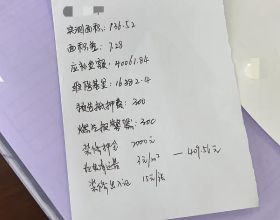 实测面积：136.52
面积差：7.28
应补差额：40061.84
维修基金：16382.4
预告抵押费：300
燃气报警器：300
装修押金 2000元
垃圾清运费 3元/m² — 409.56元
装修出入证 15元/张